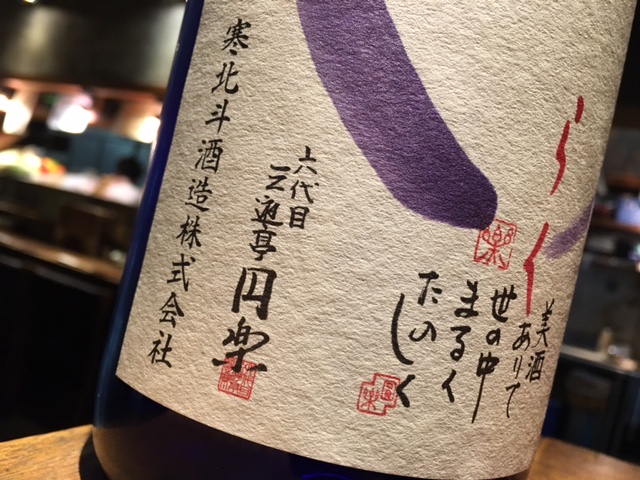 らく
美酒
ありて
世の中
まるく
たのしく
六代目
三遊亭
円楽
寒北斗酒造株式会社